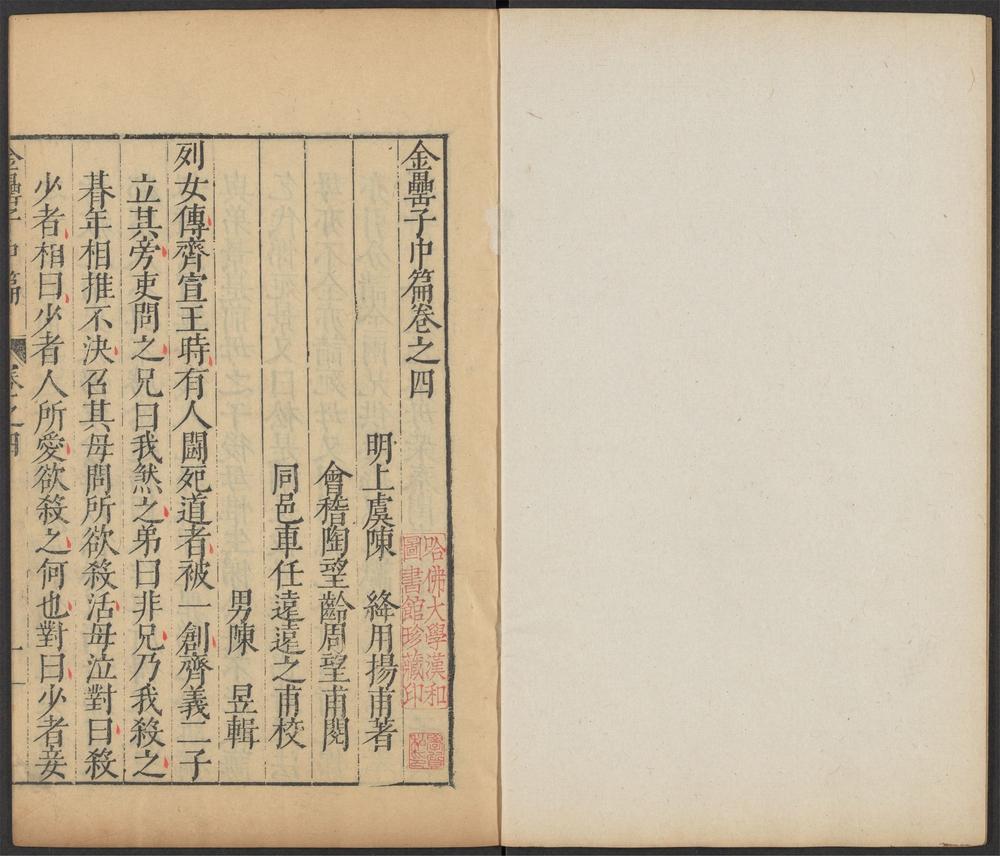 金罍子中篇卷之四
明上虞陳　絳用揚甫著
會稽陶望齡周望甫閱
同邑車任遠遠之甫校
男陳　昱輯
列女傳齊宣王時有人鬬死道者被一創齊義二子
立其旁吏問之兄曰我煞之弟曰非兄乃我殺之
朞年相推不決召其母問所欲殺活母泣對曰殺
少者相曰少者人所愛欲殺之何也對曰少者妾
金罍子中篇
卷之四
一
哈佛大學漢和
圖書館珍藏印